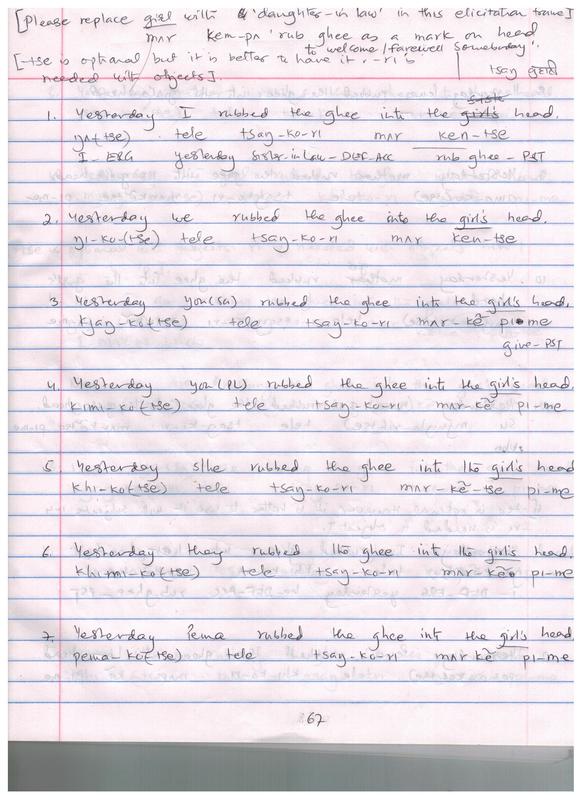 [Please replace girl with 'daughter-in law' in this elicitation frame]
mʌr kem-pʌ 'rub ghee as a mark on head
to welcome/farewell somebody'.
[-tse is optional but it is better to have it. -ri is
needed with objects].
tsaŋ
1. Yesterday I rubbed the ghee into the girl's head.
ŋʌ(tse) tele tsaŋ-ko-ri mʌr ken-tse
I-ERG yesterday Sister-in law-DEF-ACC rub ghee-PST
2. Yesterday we rubbed the ghee into the girl's head.
ŋi-ko-(tse) tele tsaŋ-ko-ri mʌr ken-tse
3. Yesterday you(SG) rubbed the ghee into the girl's head.
kjaŋ-ko(tse) tele tsaŋ-ko-ri mʌr-kẽ pi-me
give-PST
4. Yesterday you(PL) rubbed the ghee into the girl's head.
kimi-ko(tse) tele tsaŋ-ko-ri mʌr-kẽ pi-me
5. Yesterday s/he rubbed the ghee into the girl's head
khi-ko(tse) tele tsaŋ-ko-ri mʌr-kẽ-tse pi-me
6. Yesterday they rubbed the ghee into the girl's head.
khi-mi-ko(tse) tele tsaŋ-ko-ri mʌr-kẽ pi-me
7. Yesterday Pema rubbed the ghee into the girl's head
pema-ko(tse) tele tsaŋ-ko-ri mʌr kẽ pi-me
67